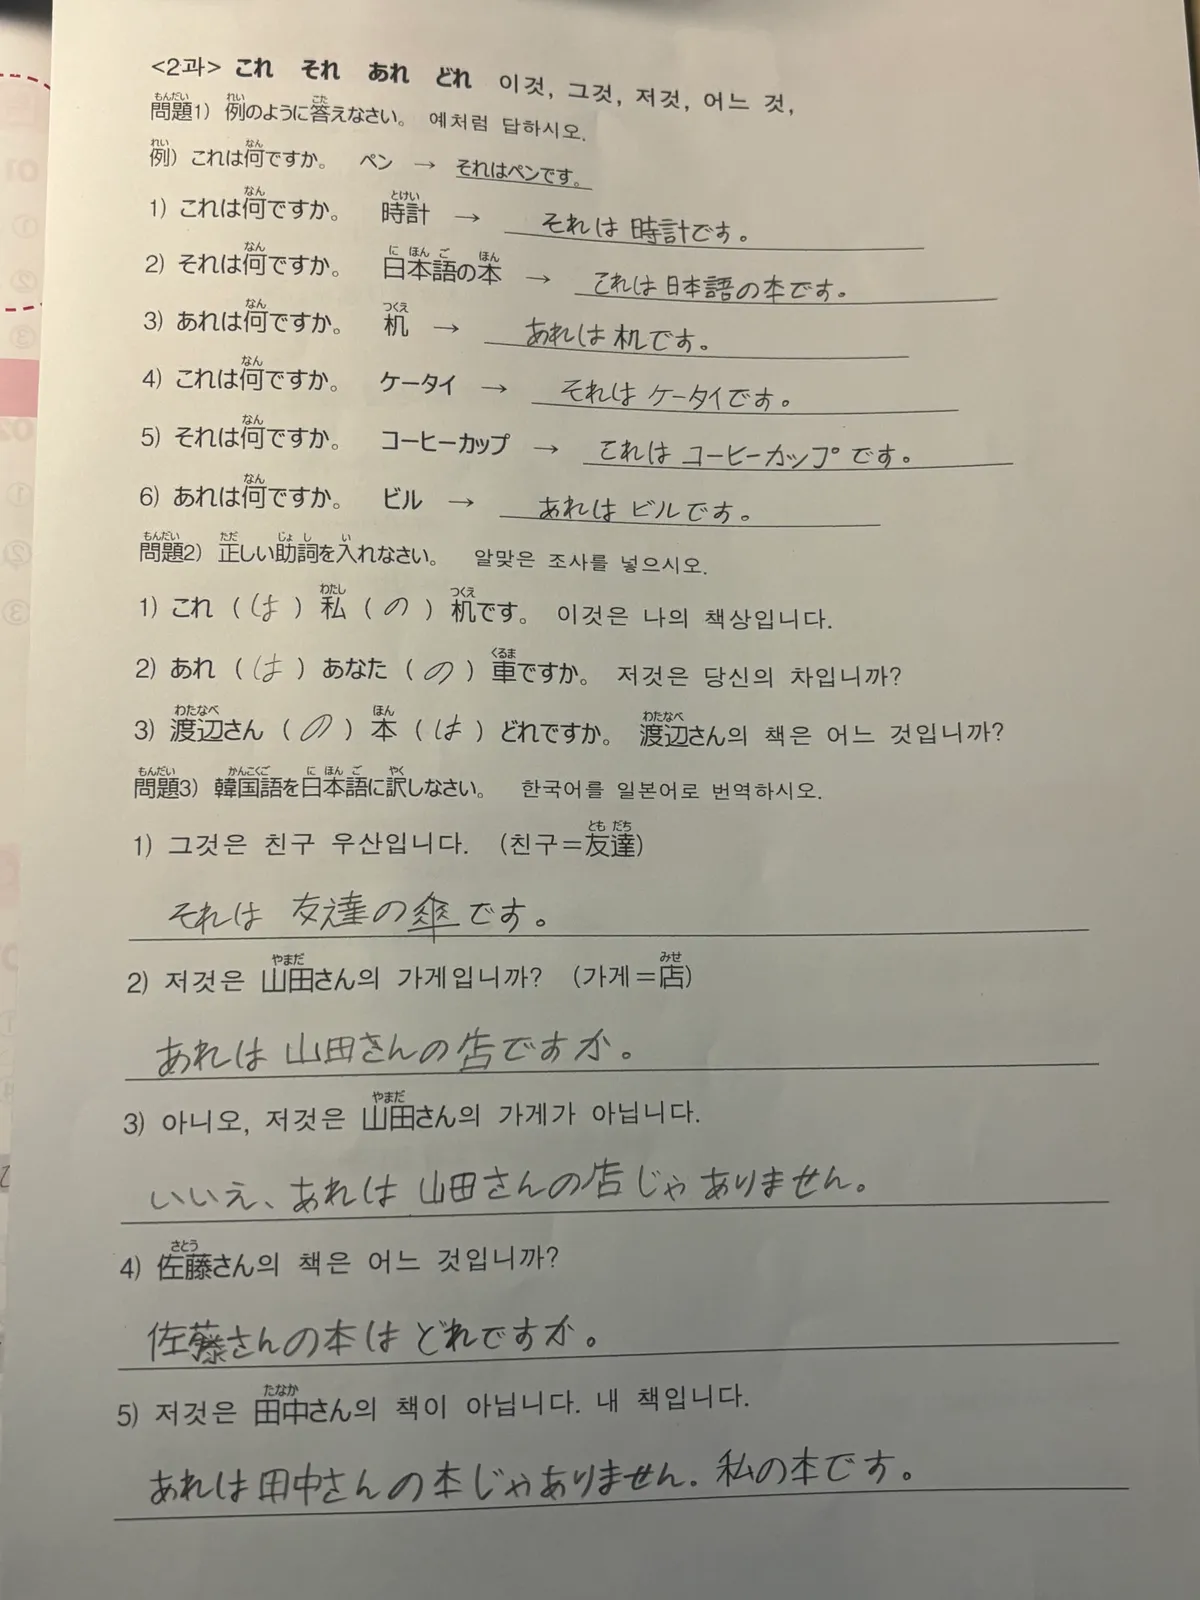 <2과> これ それ あれ どれ 이것, 그것, 저것, 어느 것,
問題1) 例のように答えなさい。 예처럼 답하시오.
例) これは何ですか。 ペン → それはペンです。
1) これは何ですか。 時計 → それは時計です。
2) それは何ですか。 日本語の本 → これは日本語の本です。
3) あれは何ですか。 机 → あれは机です。
4) これは何ですか。 ケータイ → それはケータイです。
5) それは何ですか。 コーヒーカップ → これはコーヒーカップです。
6) あれは何ですか。 ビル → あれはビルです。
問題2) 正しい助詞を入れなさい。 알맞은 조사를 넣으시오.
1) これ (は) 私 (の) 机です。 이것은 나의 책상입니다.
2) あれ (は) あなた (の) 車ですか。 저것은 당신의 차입니까?
3) 渡辺さん (の) 本 (は) どれですか。 渡辺さん의 책은 어느 것입니까?
問題3) 韓国語を日本語に訳しなさい。 한국어를 일본어로 번역하시오.
1) 그것은 친구 우산입니다. (친구=友達)
それは 友達の傘です。
2) 저것은 山田さん의 가게입니까? (가게=店)
あれは 山田さんの店ですか。
3) 아니오, 저것은 山田さん의 가게가 아닙니다.
いいえ、あれは 山田さんの店じゃありません。
4) 佐藤さん의 책은 어느 것입니까?
佐藤さんの本は どれですか。
5) 저것은 田中さん의 책이 아닙니다. 내 책입니다.
あれは田中さんの本じゃありません。私の本です。